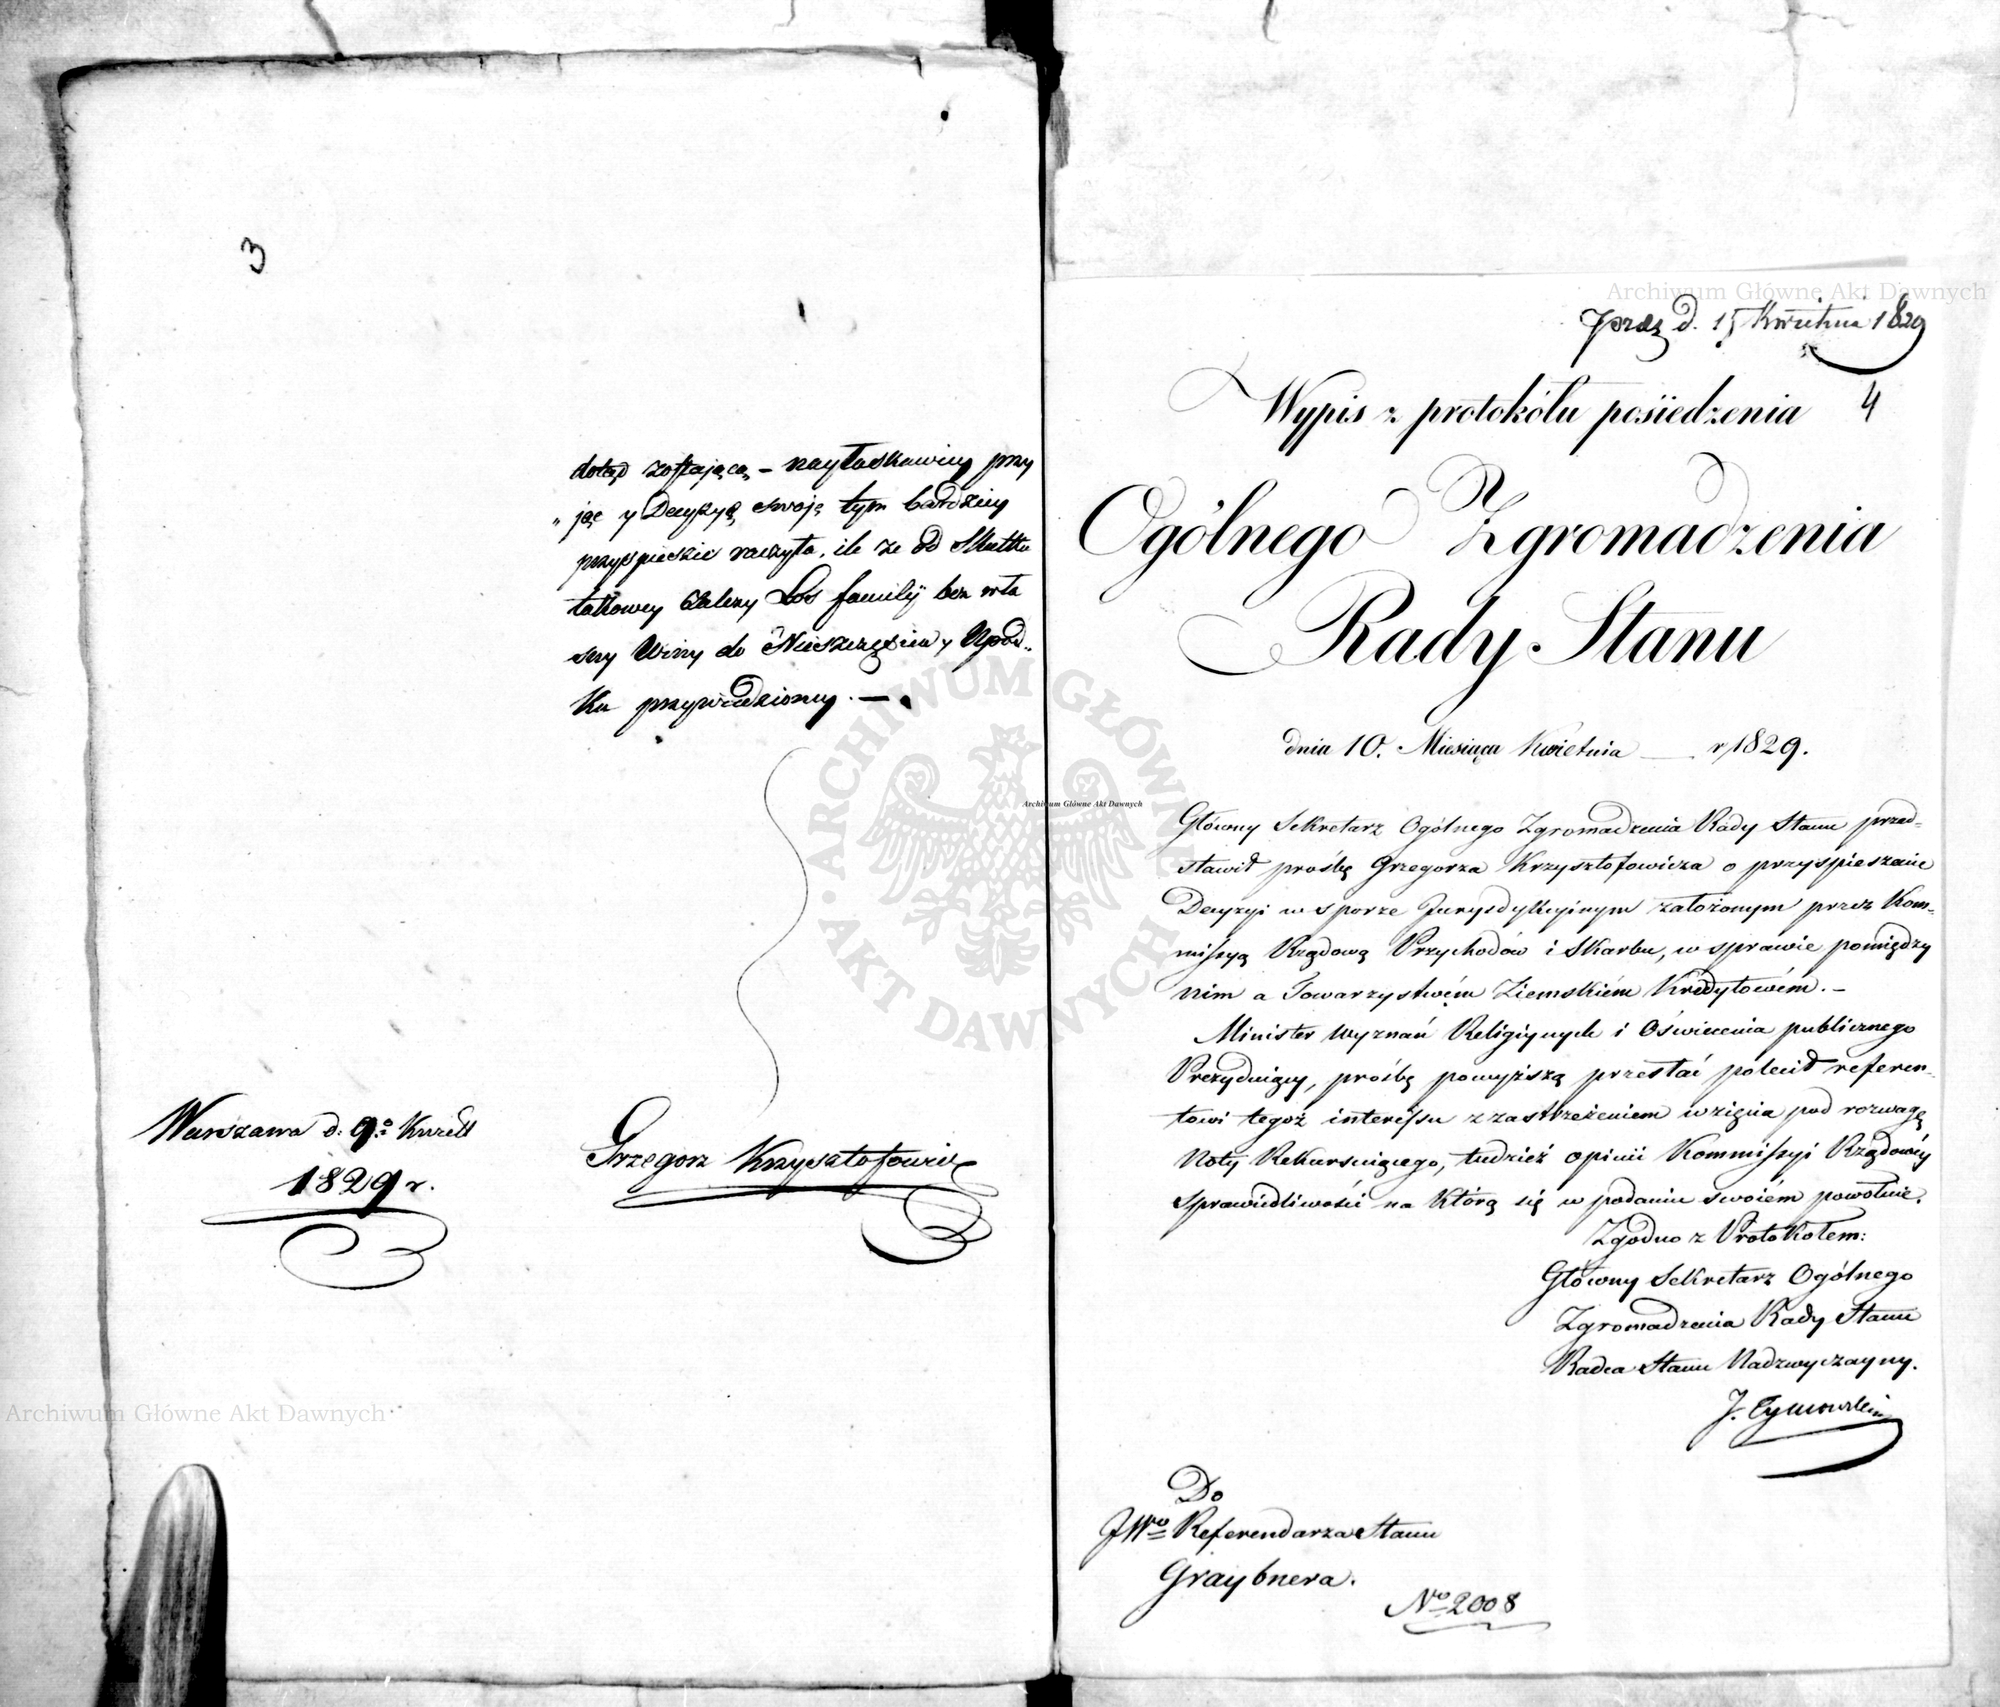 3
dotąd zostającą – nayłaskawiey przy
„ jąc y Decyzyą swoję tym bardziey
przyspieszić raczyła, ile że od Skutku
takowey zależy Los familij bez wła
sney Winy do Nieszczęścia y Upad„
ku przywiedzioney. —
Warszawa d. 9º Kwiet
1829 r.
Grzegorz Krzysztofowicz
Archiwum Główne Akt Dawnych
d. 15 Kwietnia 1829
4
Wypis z protokółu posiedzenia
Ogólnego Zgromadzenia
Rady Stanu
dnia 10. Miesiąca Kwietnia — r 1829.
Główny Sekretarz Ogólnego Zgromadzenia Rady Stanu przed-
stawił prośbę Grzegorza Krzysztofowicza o przyspieszenie
Decyzyi w sporze Jurysdykcyinym założonym przez Kom-
missyą Rządową Przychodów i Skarbu, w sprawie pomiędzy
nim a Towarzystwém Ziemskiém Kredytowém. –
Minister Wyznań Religiynych i Oświecenia publicznego
Prezyduiący, prośbę powyższą przesłać polecił referen-
towi tegoż interessu z zastrzeżeniem wzięcia pod rozwagę
Noty Rekursuiącego, tudzież opinii Kommissyi Rządowéy
Sprawiedliwości na którą się w podaniu swoiém powołuie.
Zgodno z Protokołem:
Główny Sekretarz Ogólnego
Zgromadzenia Rady Stanu
Radca Stanu Nadzwyczayny.
J. Tymowski
Do
JWº Referendarza Stanu
Graybnera.
Nº 2008
Archiwum Główne Akt Dawnych
Archiwum Główne Akt Dawnych
ARCHIWUM GŁÓWNE · AKT DAWNYCH ·